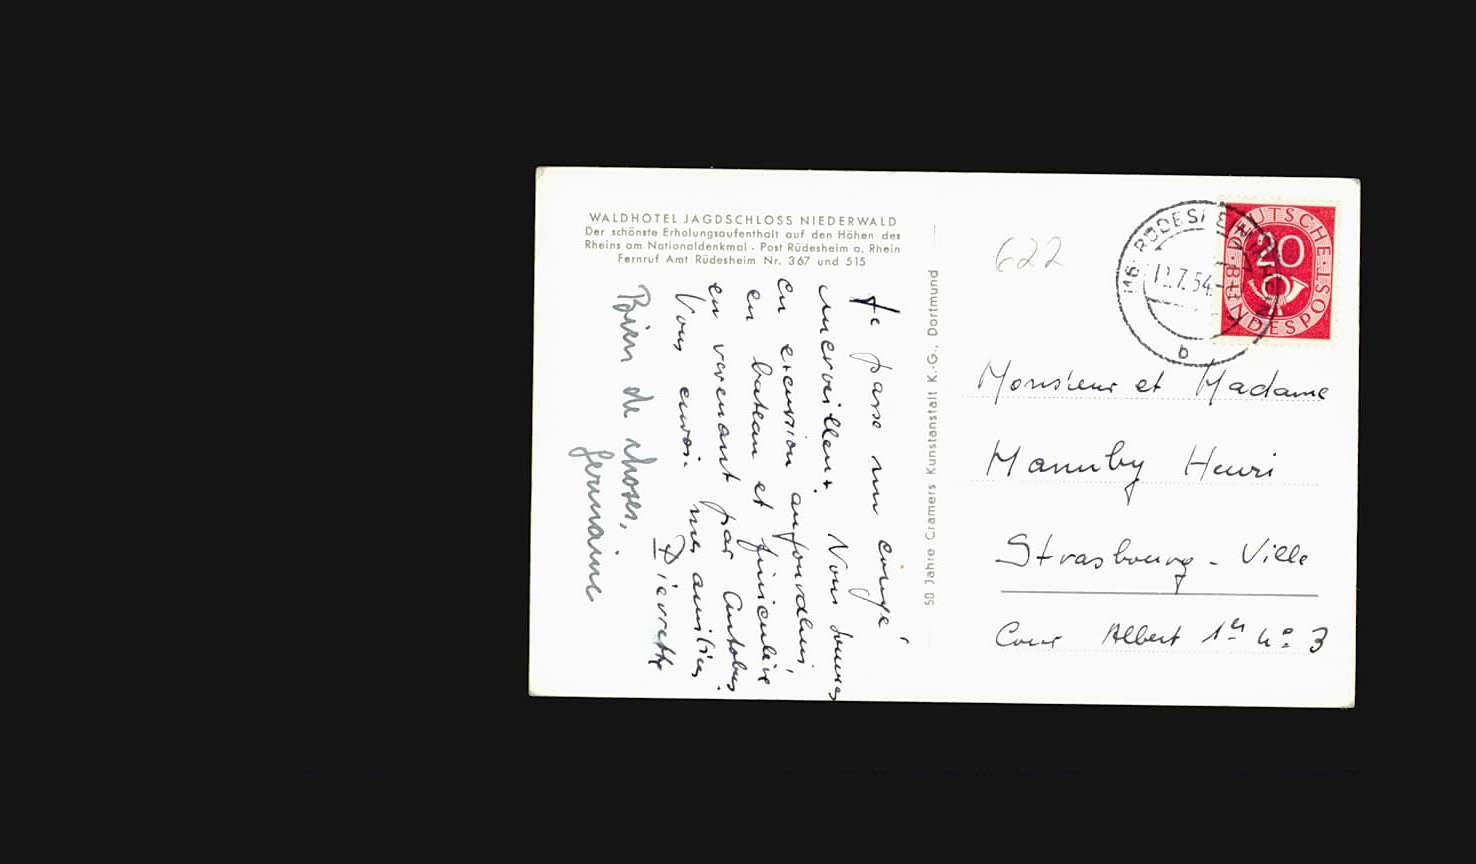 WALDHOTEL JAGDSCHLOSS NIEDERWALD
Der schönste Erholungsaufenthalt auf den Höhen des
Rheins am Nationaldenkmal - Post Rüdesheim a. Rhein
Fernruf Amt Rüdesheim Nr. 367 und 515
Je passe un congé
merveilleux. Nous sommes
en excursion aujourd'hui,
en bateau et funiculaire
en revenant par Autobus.
Vous envoie mes amitiés
Pierrette
Bien de choses,
Germaine
50 Jahre Cramers Kunstanstalt K.-G., Dortmund
622
(16) RÜDESHEIM (RHEIN)
.7.54
b
DEUTSCHE BUNDESPOST
20
Monsieur et Madame
Henri
Strasbourg - Ville
Cour Albert 1er No 3